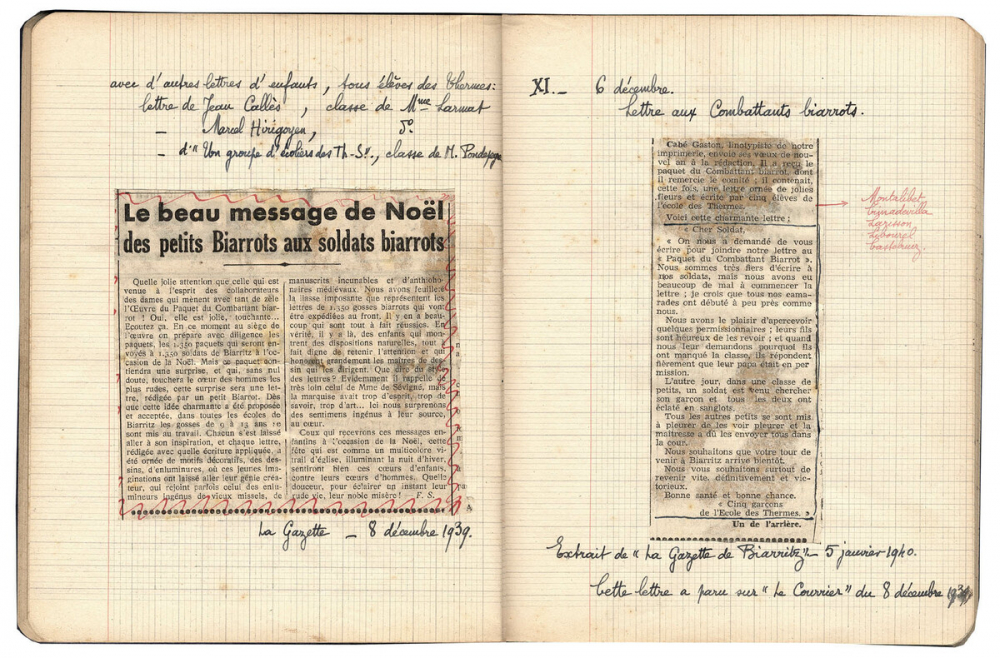 avec d'autres lettres d'enfants, tous élèves des Thermes:
lettre de Jean Callès, classe de Mme Larmat
_ Marcel Hirigoyen, 5e
_ d'"Un groupe d'écoliers des Th-Sns", classe de M.
Le beau message de Noël
des petits Biarrots aux soldats biarrots
Quelle jolie attention que celle qui est
venue à l'esprit des collaborateurs
des dames qui mènent avec tant de zèle
l'Œuvre du Paquet du Combattant biar-
rot ! Oui, elle est jolie, touchante...
Ecoutez ça. En ce moment au siège de
l'œuvre on prépare avec diligence les
paquets, les 1.350 paquets qui seront en-
voyés à 1.350 soldats de Biarritz à l'oc-
casion de la Noël. Mais ce paquet con-
tiendra une surprise, et qui, sans nul
doute, touchera le cœur des hommes les
plus rudes, cette surprise sera une let-
tre, rédigée par un petit Biarrot. Dès
que cette idée charmante a été proposée
et acceptée, dans toutes les écoles de
Biarritz les gosses de 9 à 13 ans se
sont mis au travail. Chacun s'est laissé
aller à son inspiration, et chaque lettre,
rédigée avec quelle écriture appliquée, a
été ornée de motifs décoratifs, des des-
sins, d'enluminures, où ces jeunes ima-
ginations ont laissé aller leur génie créa-
teur, qui rejoint parfois celui des enlu-
mineurs ingénus de vieux missels, de
manuscrits incunables et d'antipho-
naires médiévaux. Nous avons feuilleté
la liasse imposante que représentent les
lettres de 1.350 gosses biarrots qui vont
être expédiées au front. Il y en a beau-
coup qui sont tout à fait réussies. En
vérité, il y a là, des enfants qui mon-
trent des dispositions naturelles, tout à
fait digne de retenir l'attention et qui
honorent grandement les maîtres de des-
sin qui les dirigent. Que dire du style
des lettres ? Evidemment il rappelle de
très loin celui de Mme de Sévigné, mais
la marquise avait trop d'esprit, trop de
savoir, trop d'art... Ici nous surprenons
des sentiments ingénus à leur source,
au cœur.
Ceux qui recevrons ces messages en-
fantins à l'occasion de la Noël, cette
fête qui est comme un multicolore vi-
trail d'église, illuminant la nuit d'hiver,
sentiront bien ces cœurs d'enfants,
contre leurs cœurs d'hommes. Quelle
douceur, pour éclairer un instant leur
rude vie, leur noble misère! — F. S.
La Gazette _ 8 décembre 1939.
XI._ 6 décembre.
Lettre aux Combattants biarrots.
Cabé Gaston, linotypiste de notre
imprimerie, envoie ses vœux de nou-
vel an à la rédaction. Il a reçu le
paquet du Combattant biarrot, dont
il remercie le comité ; il contenait,
cette fois, une lettre ornée de jolies
fleurs et écrite par cinq élèves de
l'école des Thermes.
Voici cette charmante lettre :
« Cher Soldat,
« On nous a demandé de vous
écrire pour joindre notre lettre au
« Paquet du Combattant Biarrot ».
Nous sommes très fiers d'écrire à
nos soldats, mais nous avons eu
beaucoup de mal à commencer la
lettre ; je crois que tous nos cama-
rades ont débuté à peu près comme
nous.
Nous avons le plaisir d'apercevoir
quelques permissionnaires ; leurs fils
sont heureux de les revoir ; et quand
nous leur demandons pourquoi ils
ont manqué la classe, ils répondent
fièrement que leur papa était en per-
mission.
L'autre jour, dans une classe de
petits, un soldat est venu chercher
son garçon et tous les deux ont
éclaté en sanglots.
Tous les autres petits se sont mis
à pleurer de les voir pleurer et la
maîtresse a dû les envoyer tous dans
la cour.
Nous souhaitons que votre tour de
venir à Biarritz arrive bientôt.
Nous vous souhaitons surtout de
revenir vite, définitivement et vic-
torieux.
Bonne santé et bonne chance.
« Cinq garçons
de l'Ecole des Thermes. »
Un de l'arrière.
Montalibet
Larisson
Extrait de "La Gazette de Biarritz" _ 5 janvier 1940.
Cette lettre a paru sur "Le Courrier" du 8 décembre 1939